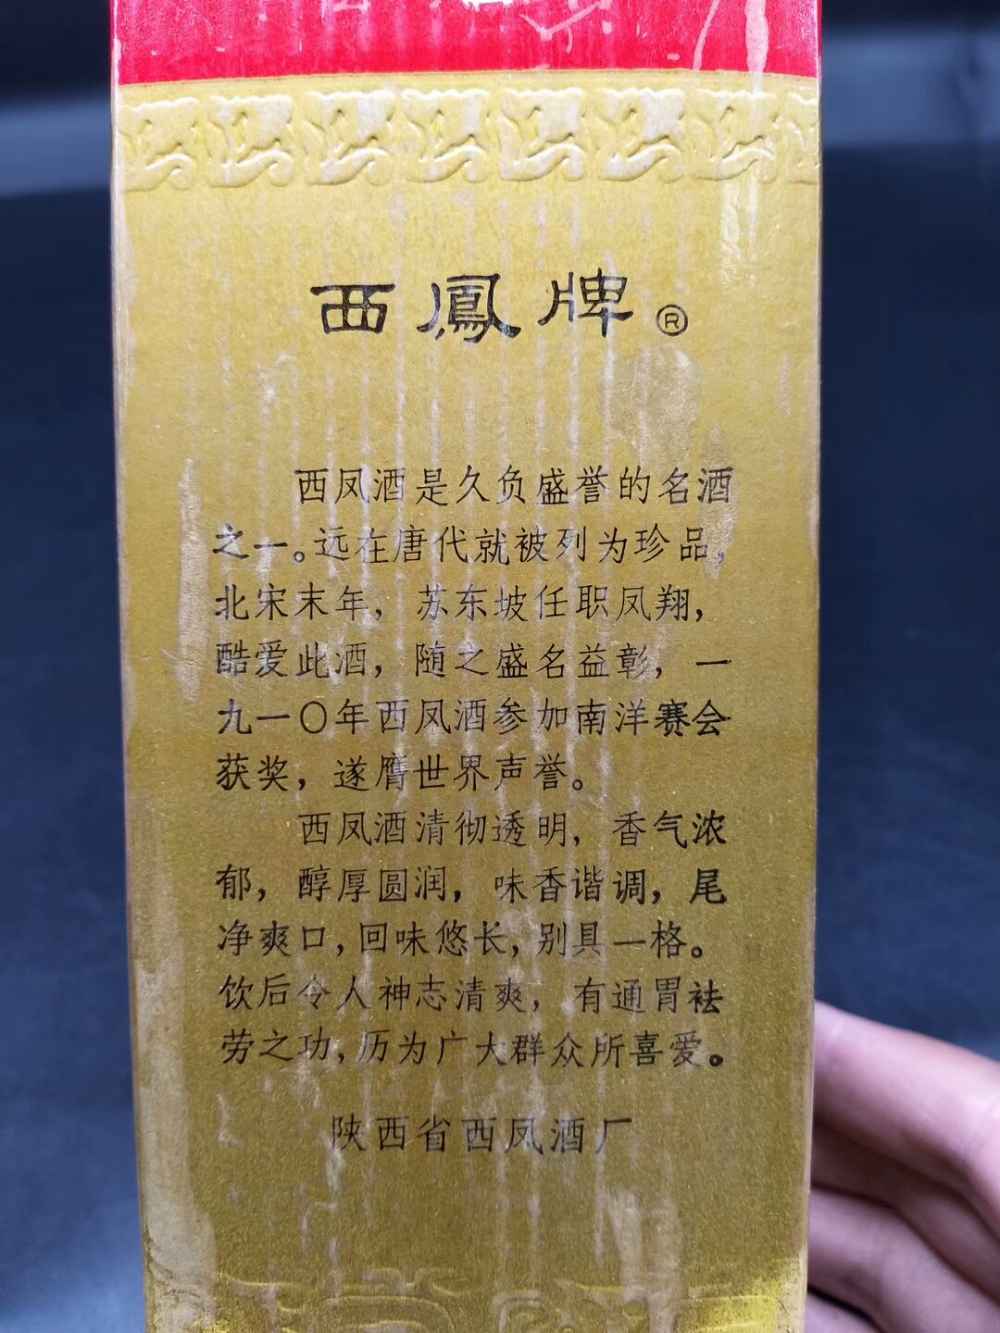 西鳳牌®
西凤酒是久负盛誉的名酒
之一。远在唐代就被列为珍品，
北宋末年，苏东坡任职凤翔，
酷爱此酒，随之盛名益彰，一
九一〇年西凤酒参加南洋赛会
获奖，遂膺世界声誉。
西凤酒清彻透明，香气浓
郁，醇厚圆润，味香谐调，尾
净爽口，回味悠长，别具一格。
饮后令人神志清爽，有通胃祛
劳之功，历为广大群众所喜爱。
陕西省西凤酒厂